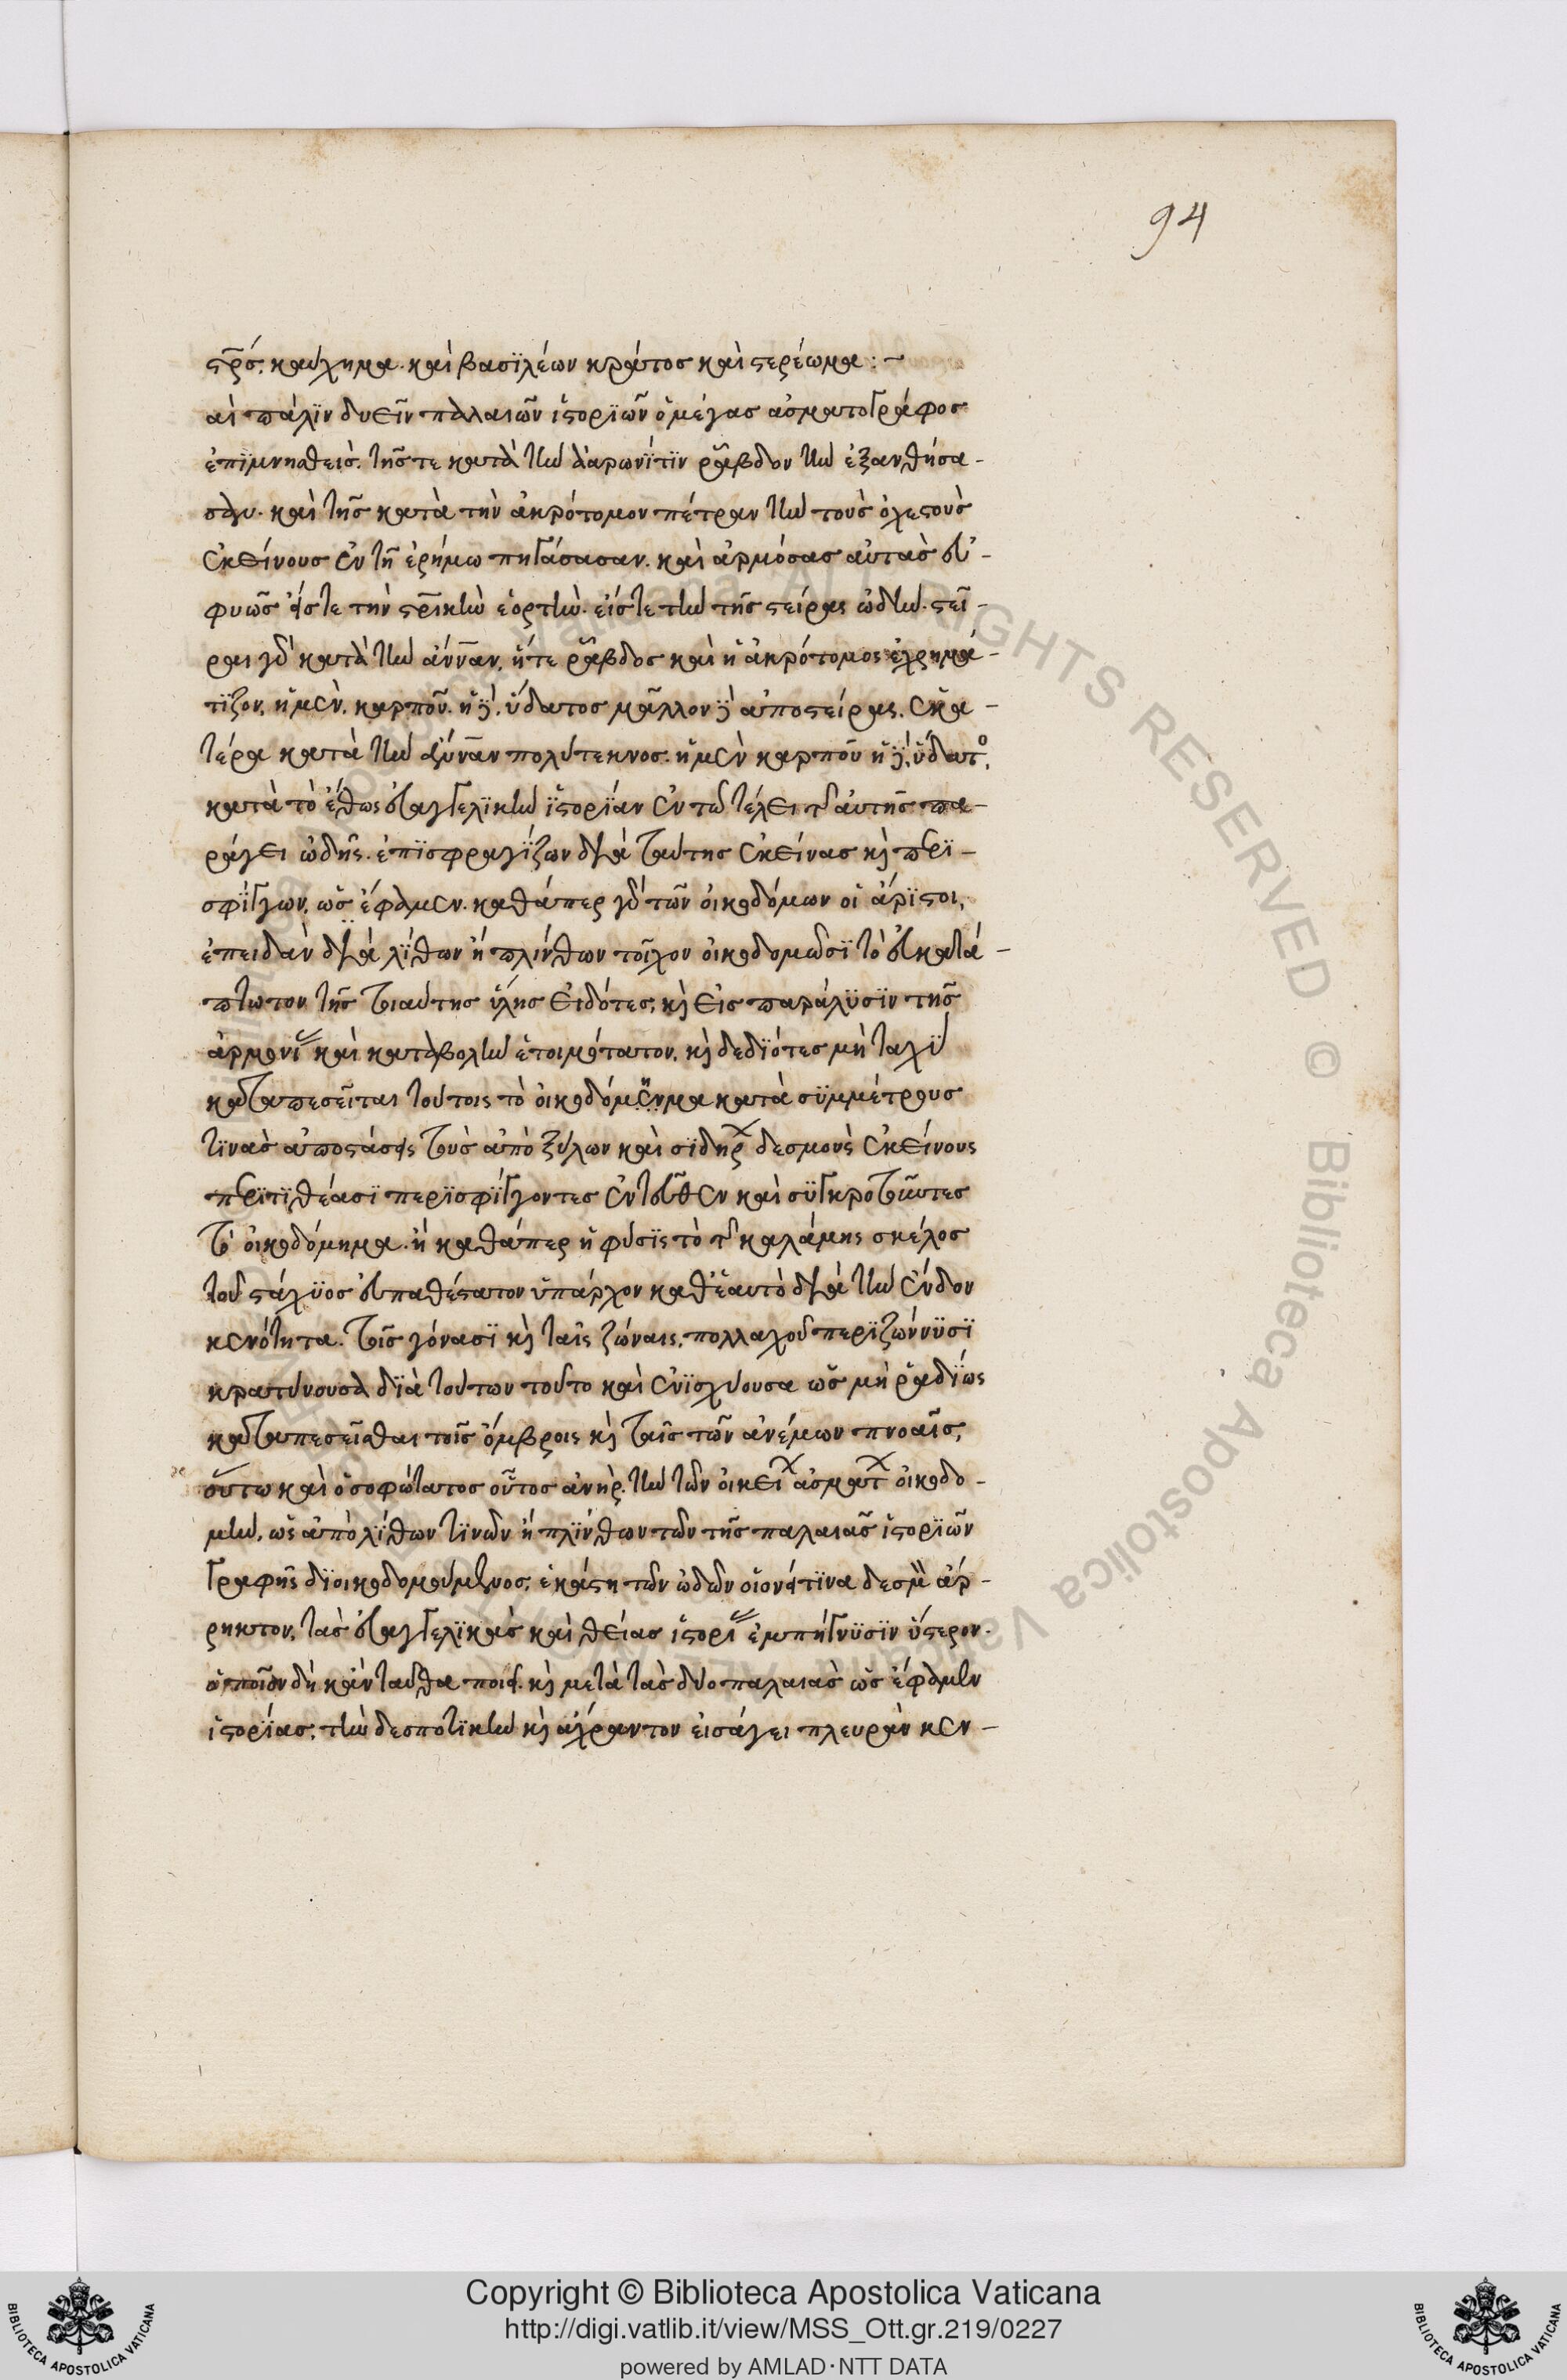 94
σρ̅σ́. καύχημα. καὶ βασϊλέων κράτος καὶ στερέωμα :~
αὶ πάλϊν δυεῖν παλαιῶν ἱστορϊῶν ὁ μέγας ἀσματογράφος
ἐπϊμνησθεὶς. τῆς τε κατὰ τὴν ἀαρωνίτϊν ῥάβδον τὴν ἐξανθήσα-
σαν. καὶ τῆς κατὰ τὴν ἀκρότομον πέτραν τὴν τοὺς ὀχετοὺς
ἐκείνους ἐν τῆ ἐρήμω πηγάσασαν. καὶ ἁρμόσας αὐτὰς εὐ-
φυῶς εἴς τε τὴν σρ̅ικὴν ἑορτὴν. εἴς τε τὴν τῆς στείρας ὠδὴν. στεῖ-
ραι γὰρ κατὰ τὴν ἄνναν, ἥ τε ῥάβδος καὶ ἡ ἀκρότομος ἐχρημά-
τϊζον, ἡ μὲν, καρποῦ. ἡ δὲ, ὕδατος μᾶλλον δὲ ἀπὸ στείρας. ἑκα-
τέρα κατὰ τὴν ἄνναν πολύτεκνος. ἡ μὲν καρποῦ ἡ δὲ, ὕδατο.
κατὰ τὸ ἔθος εὐαγγελϊκὴν ἱστορίαν ἐν τῶ τέλει τῆς αὐτῆς πα-
ράγει ὠδῆς. ἐπϊσφραγίζων διὰ ταύτης ἐκείνας κὶ περϊ-
σφίγγων, ὡς ἔφαμεν. καθάπερ γὰρ τῶν οἰκοδόμων οἱ ἄρϊστοι,
ἐπειδὰν διὰ λίθων ἢ πλίνθων τοῖχον οἰκοδομῶσϊ τὸ εὐκατά-
πτωτον τῆς τοιαύτης ὕλης εἰδότες, κὶ εἰς παράλϋσϊν τῆς
ἁρμονί καὶ καταβολὴν ἑτοιμότατον, κὶ δεδϊότες μὴ ταχϋ
καταπεσεῖται τούτοις τὸ οἰκοδόμενμα κατὰ σϋμμέτρους
τϊνὰς ἀποστάσεις τοὺς ἀπὸ ξύλων καὶ σϊδήρ δεσμοὺς ἐκείνους
περϊτϊθέασϊ περϊσφίγγοντες ἐντεῦθεν καὶ σϋγκροτοῦντες
τὸ οἰκοδόμημα. ἢ καθάπερ ἡ φύσϊς τὸ τῆς καλάμης σκέλος
τοῦ στάχϋος εὐπαθέστατον ὑπάρχον καθ' ἑαυτὸ διὰ τὴν ἔνδον
κενότητα. τοῖς γόνασϊ κὶ ταῖς ζώναις, πολλαχοῦ περϊζώννϋσϊ
κρατύνουσα δϊὰ τούτων τοῦτο καὶ ἐνϊσχύουσα ὡς μὴ ῥαδϊως
καταπεσεῖσθαι τοῖς ὄμβροις κὶ ταῖς τῶν ἀνέμων πνοαῖς,
οὕτω καὶ ὁ σοφώτατος οὗτος ἀνὴρ. τὴν τῶν οἰκεί ἀσμάτ οἰκοδο-
μὴν, ὡς ἀπὸ λίθων τϊνῶν ἢ πλίνθων τῶν τῆς παλαιᾶς ἱστορϊῶν
γραφῆς δϊοικοδομούμενος, ἑκάστη τῶν ὠδῶν οἱονεί τϊνα δεσμὸν ἄρ-
ρηκτον, τὰς εὐαγγελϊκὰς καὶ θείας ἱστορί ἐμπήγνϋσϊν ὕστερον.
ὁποῖον δὴ κἀνταῦθα ποιεῖ. κὶ μετὰ τὰς δύο παλαιὰς ὡς ἔφαμεν
ἱστορίας, τὴν δεσποτϊκὴν κὶ ἄχραντον εἰσάγει πλευρὰν κεν-
Copyright © Biblioteca Apostolica Vaticana
http://digi.vatlib.it/view/MSS_Ott.gr.219/0227
powered by AMLAD·NTT DATA